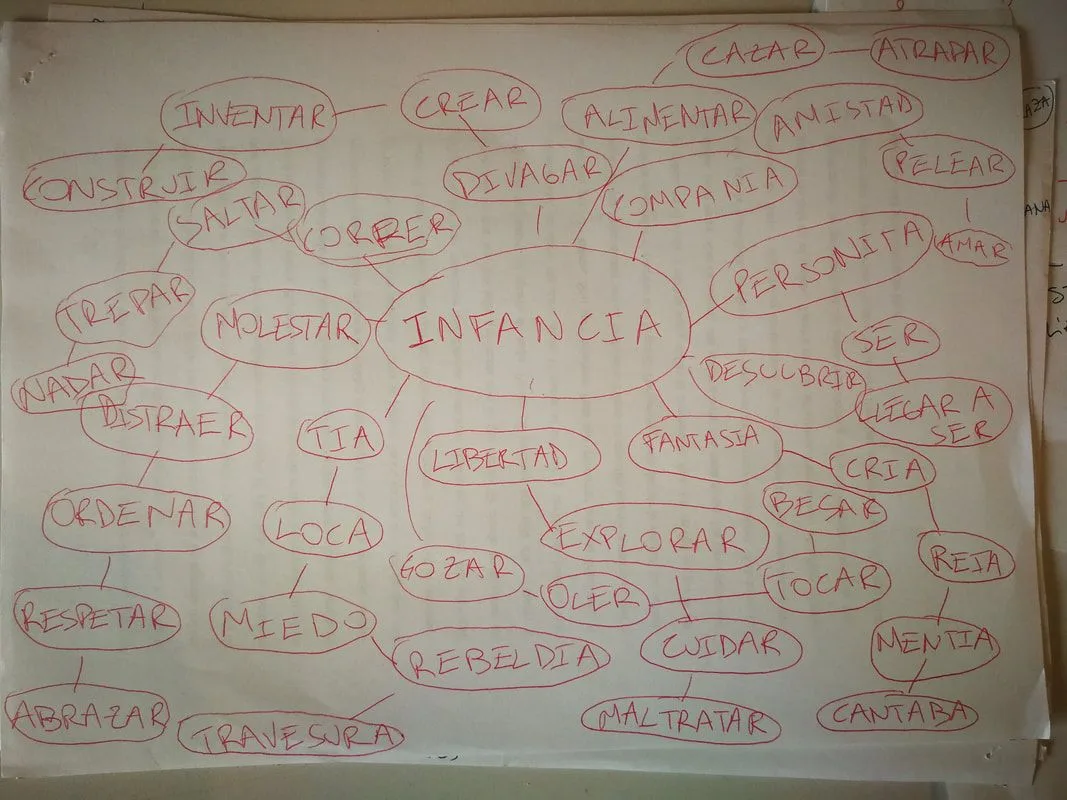 CAZAR
ATRAPAR
INVENTAR
CREAR
ALIMENTAR
AMISTAD
CONSTRUIR
DIVAGAR
COMPANIA
PELEAR
SALTAR
CORRER
PERSONITA
AMAR
TREPAR
MOLESTAR
INFANCIA
SER
NADAR
DISTRAER
DESCUBRIR
LLEGAR A
SER
TIA
LIBERTAD
FANTASIA
CRIA
ORDENAR
LOCA
EXPLORAR
BESAR
GOZAR
OLER
TOCAR
REIA
RESPETAR
MIEDO
REBELDIA
CUIDAR
MENTIA
ABRAZAR
TRAVESURA
MALTRATAR
CANTABA
AZA
ANA